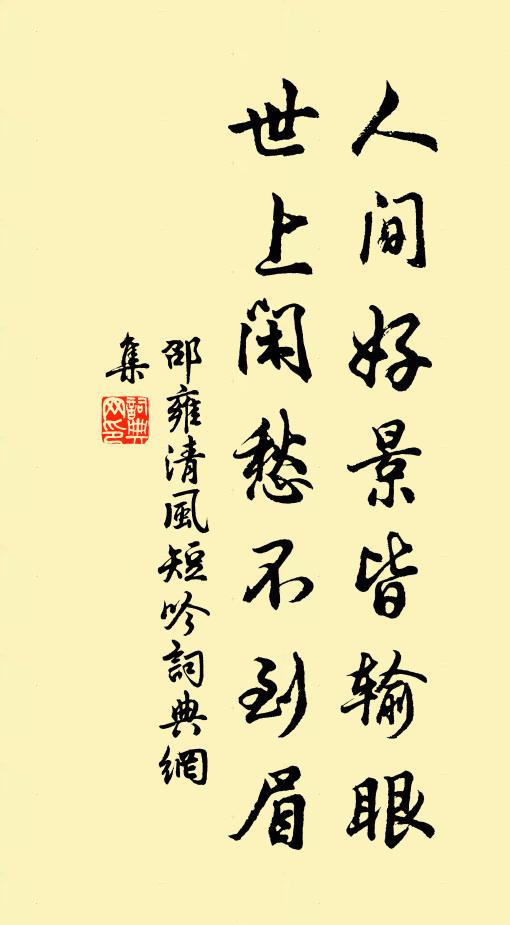 人間好景皆輸眼
世上閑愁不到眉
邵雍清風短吟詞典網
集
詞典網印